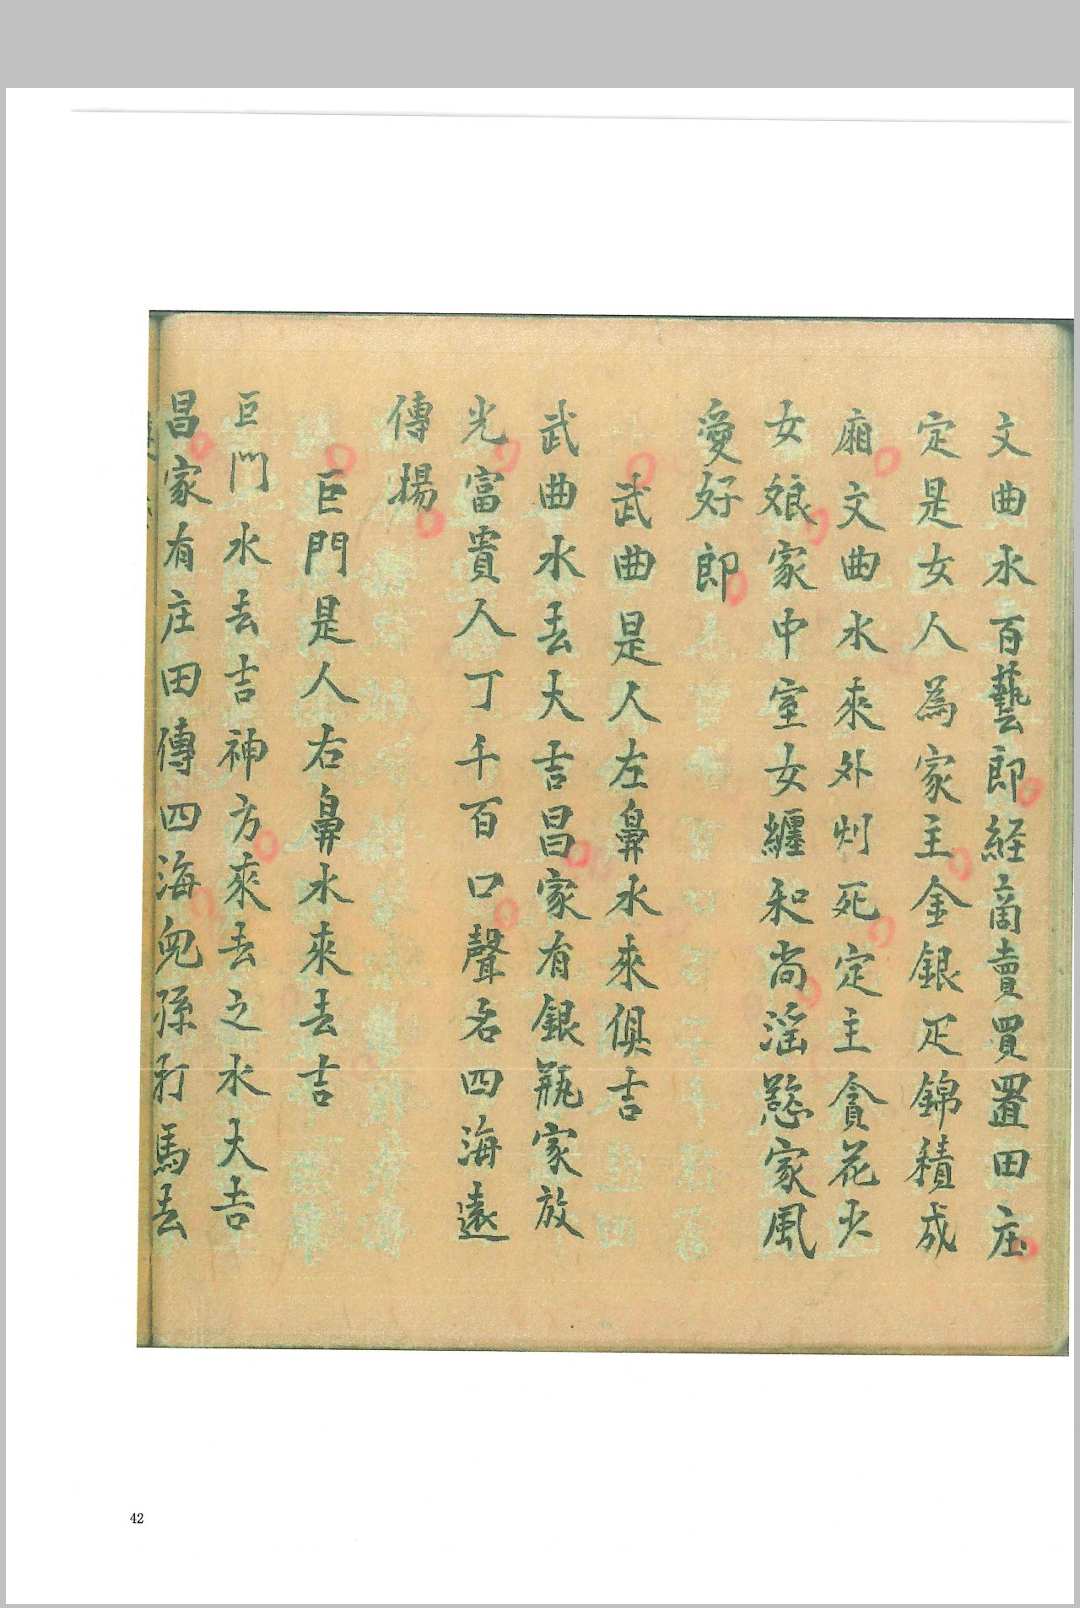 文曲水百藝郎経商賣買置田庄
定是女人為家主金銀疋錦積成
廂文曲水來外州死定主貪花少
女娘家中室女纏和尚滛慾家風
愛好郎
武曲是人左鼻水來俱吉
武曲水去大吉昌家有銀瓶家放
光富貴人丁千百口聲名四海遠
傳揚
巨門是人右鼻水來去吉
巨門水去吉神方來去之水大吉
昌家有庄田傳四海兒孫打馬去
42